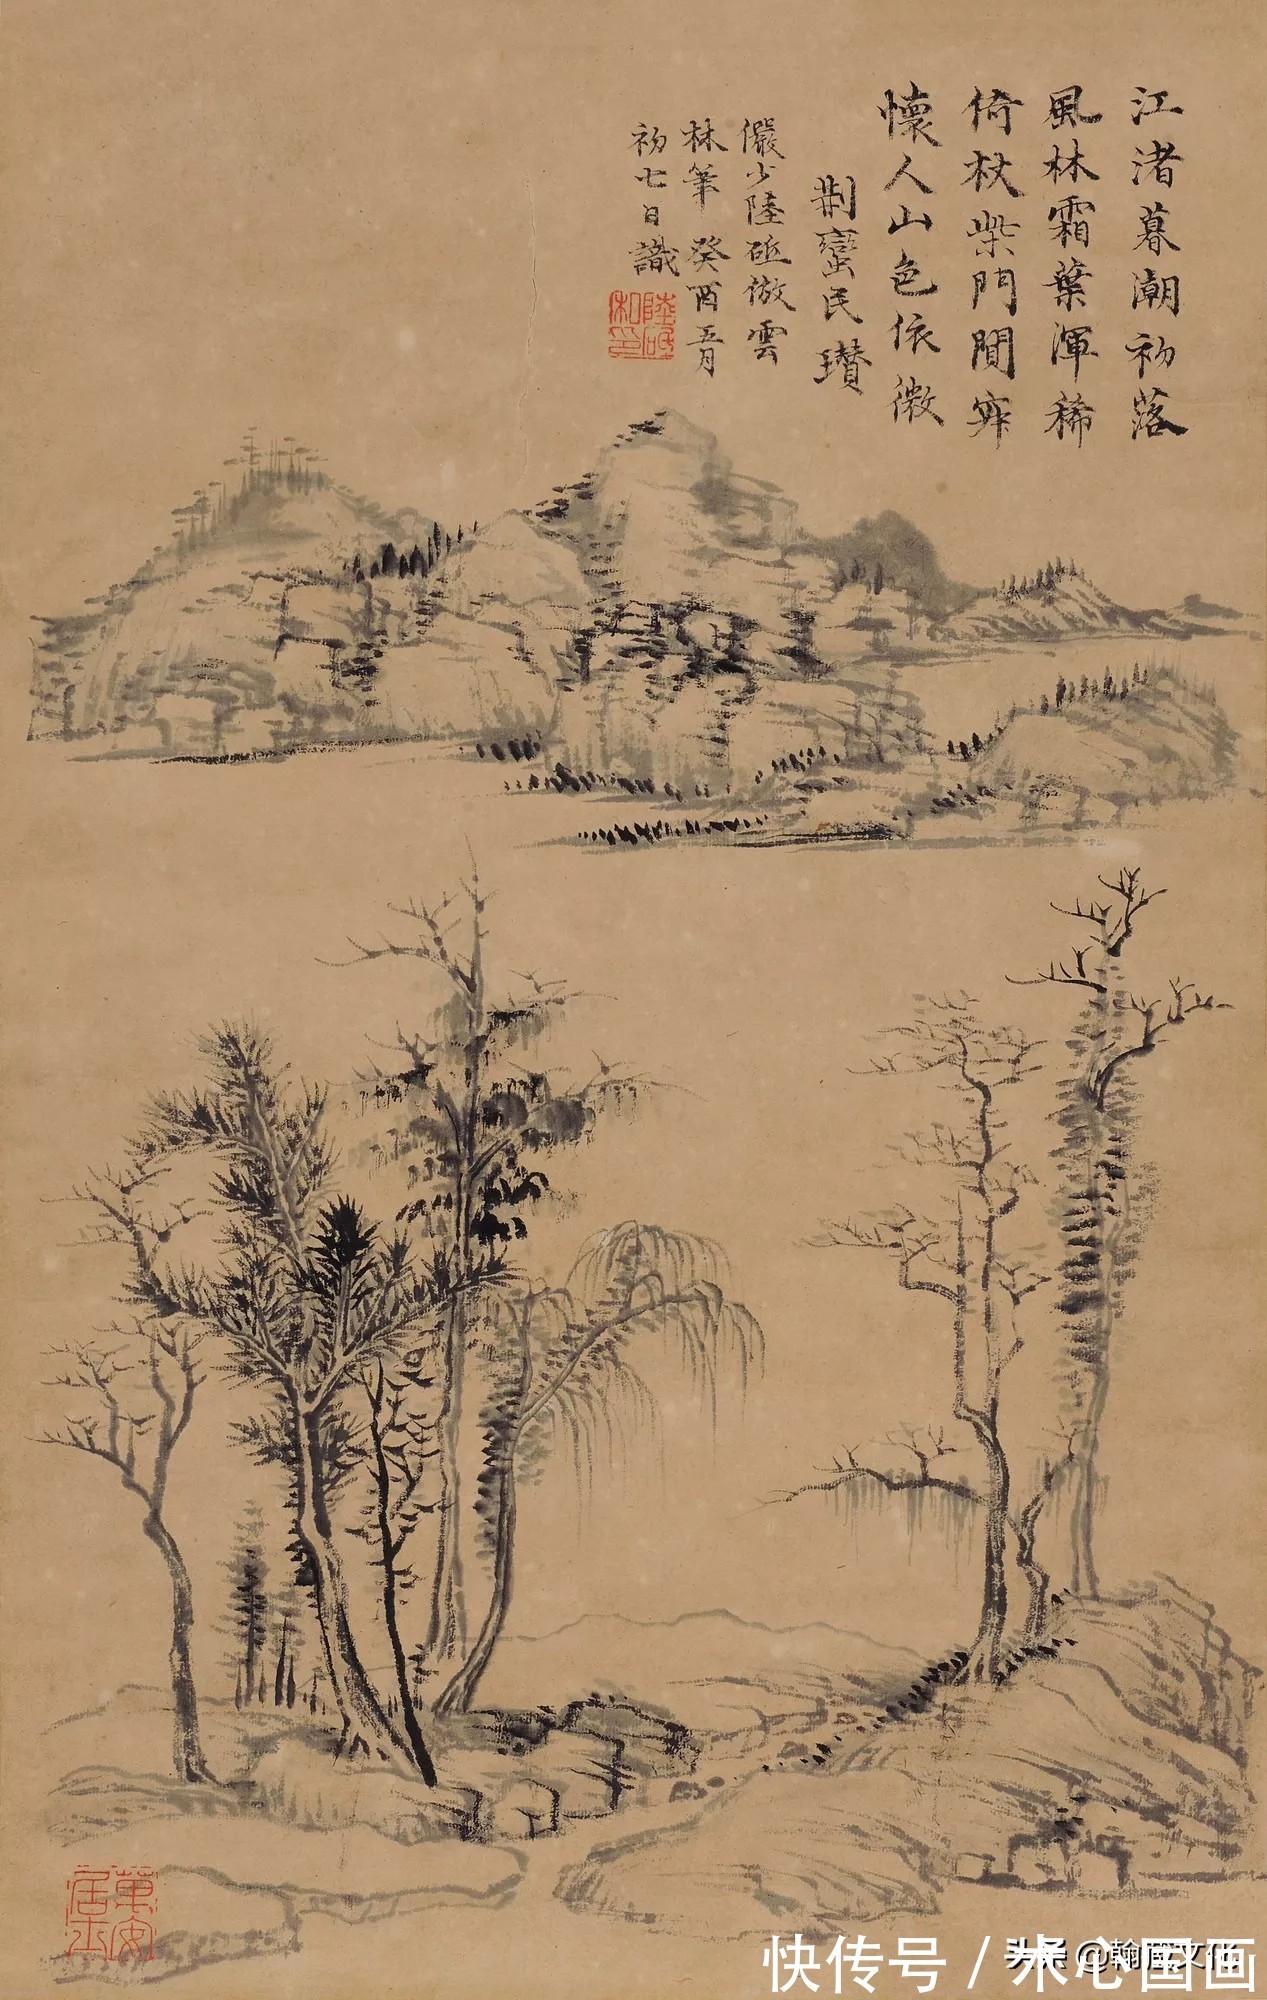 江渚暮潮初落
風林霜葉渾稀
倚杖柴門闃寂
懷人山色依微
荊蠻民瓚
儼少陸砥倣雲
林筆癸酉五月
初七日識
陸砥私印
头条 @翰
快传号 / 米心国画